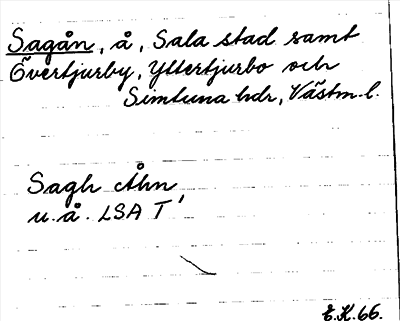 Sagån, å, Sala stad samt
Övertjurby, Yttertjurbo och
Simtuna hdr, Västm.l.
Sagh Åhn
u.å. LSA T
E.K.66.